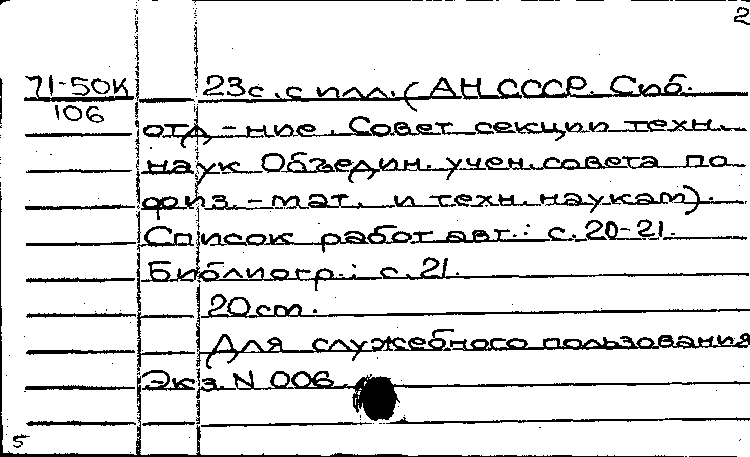 2
71-50К 23с. с илл. (АН СССР. Сиб.
106
отд-ние. Совет секции техн.
наук Объедин. учен. совета по
физ.-мат. и техн. наукам).
Список работ авт.: с. 20-21.
Библиогр.: с. 21.
20 cm.
Для служебного пользования
Экз. N 006.
5